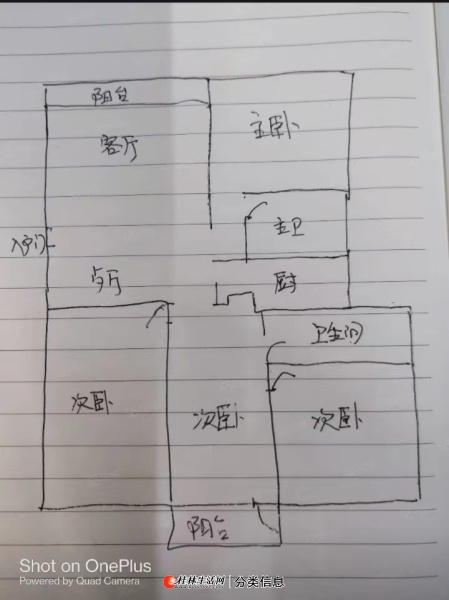 阳台
客厅
主卧
主卫
入户门
厨
卫生间
次卧
次卧
次卧
阳台
Shot on OnePlus
Powered by Quad Camera
桂林生活网 分类信息